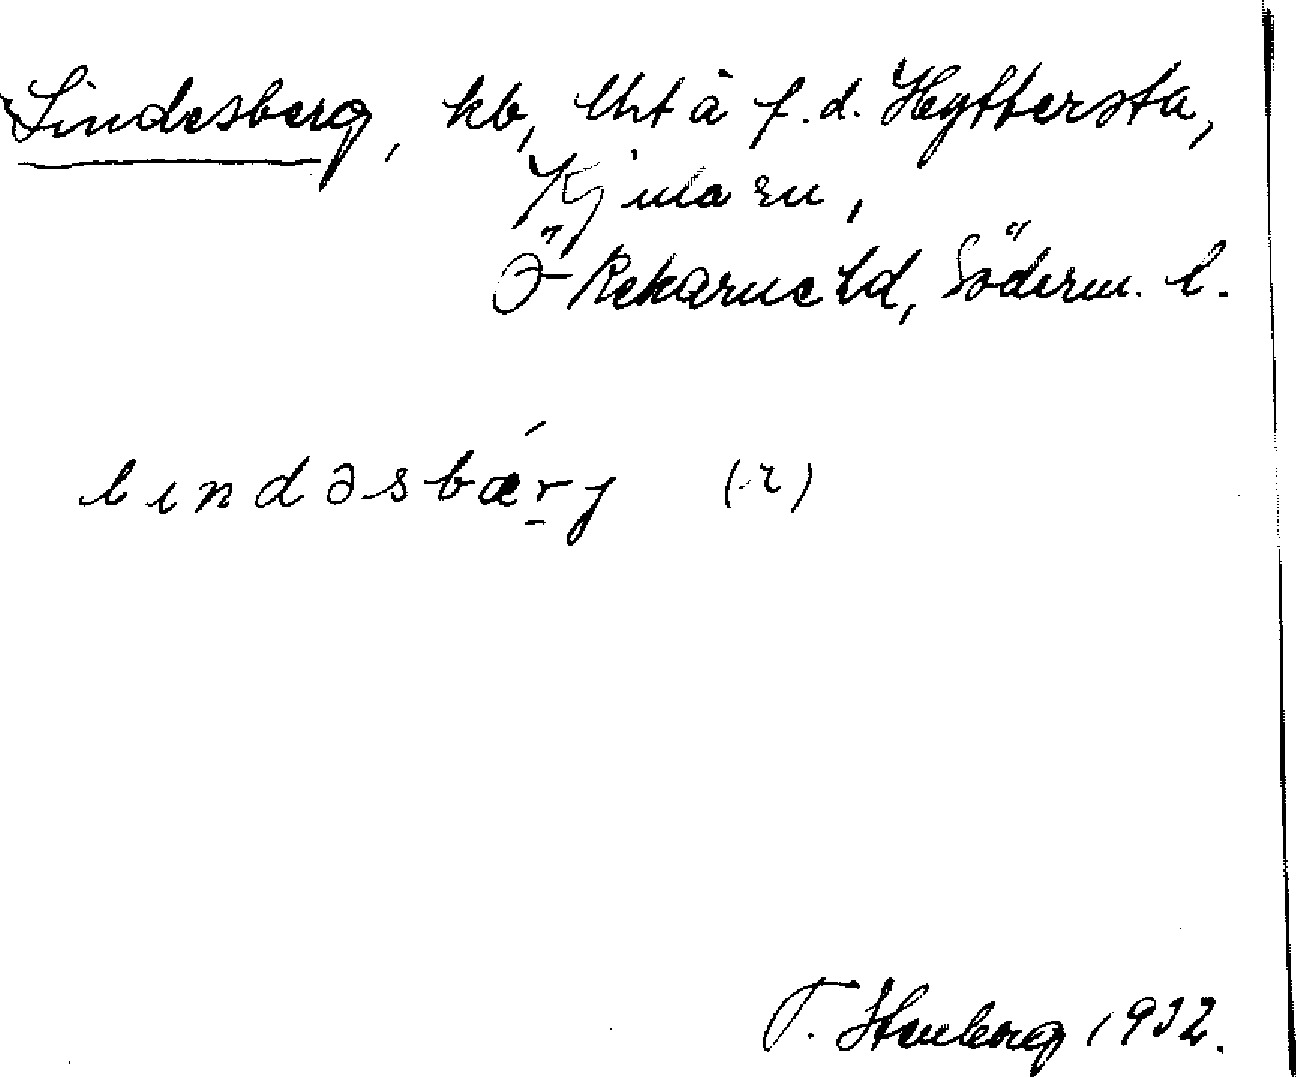 Lindesberg, kb, lht å f.d. Hyttersta,
Kjula sn,
Ö Rekarne hd, Söderm. l.
lındəsbæŕ̲j (-ɪ)
T. Stenberg 1932.